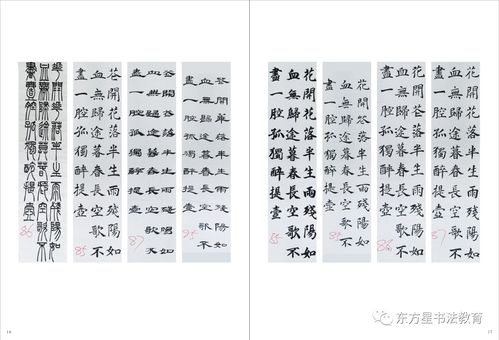 花開花落半生雨殘陽如
血無歸途暮春長空歌不
盡一腔孤獨醉提壺
86
花開花落半生雨殘陽如
血無歸途暮春長空歌不
盡一腔孤獨醉提壺
85
花開花落半生雨殘陽如
血無歸途暮春長空歌不
盡一腔孤獨醉提壺
87
花開花落半生雨殘陽如
血無歸途暮春長空歌不
盡一腔孤獨醉提壺
16
花開花落半生雨殘陽如
血無歸途暮春長空歌不
盡一腔孤獨醉提壺
85
花開花落半生雨殘陽如
血無歸途暮春長空歌不
盡一腔孤獨醉提壺
85
花開花落半生雨殘陽如
血無歸途暮春長空歌不
盡一腔孤獨醉提壺
86
花開花落半生雨殘陽如
血無歸途暮春長空歌不
盡一腔孤獨醉提壺
87
17
东方星书法教育